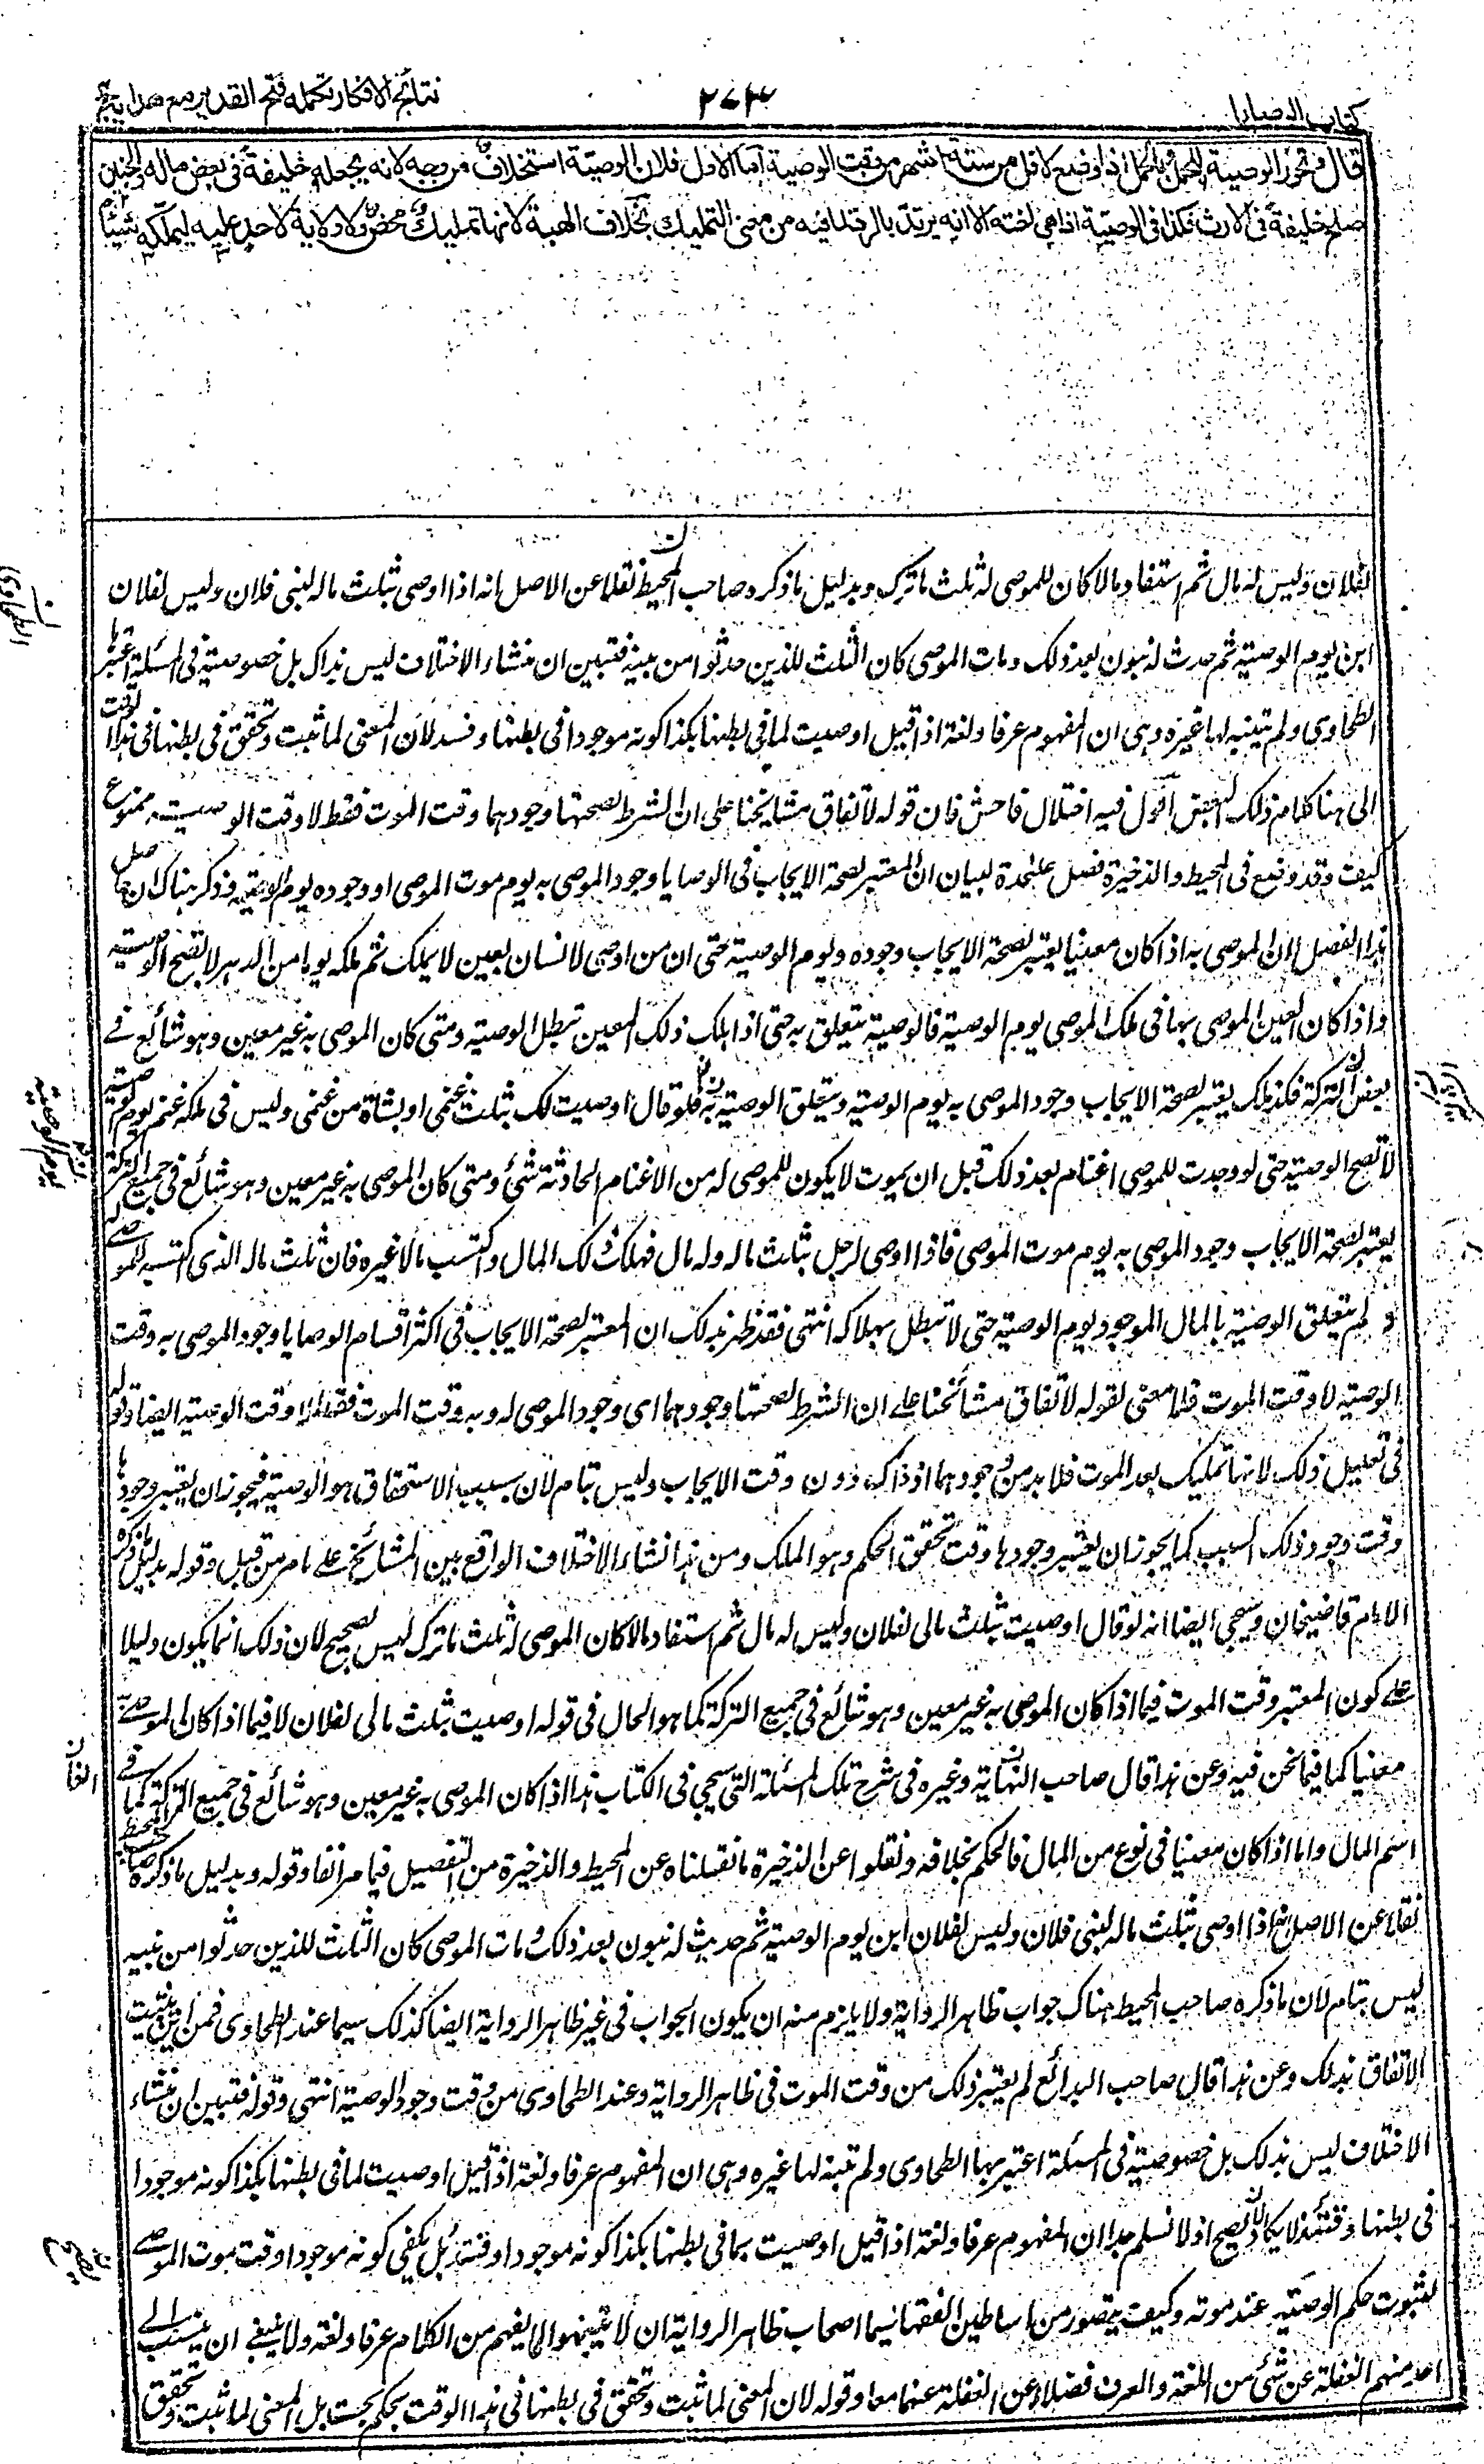 كتاب الوصايا
۲۷۳
نتائج الافكار تكمله فتح القدير مع هدايه
قال وتجوز الوصية للحمل وبالحمل اذا وضع لاقل من ستة اشهر من وقت الوصية اما الاول فلان الوصية استخلاف من وجه لانه يجعله خليفة في بعض ماله والجنين
صلح خليفة في الارث فكذا في الوصية اذ هي اخته الا انه يرتد بالرد لما فيه من معنى التمليك بخلاف الهبة لانها تمليك محض ولا ولاية لاحد عليه ليملكه شيئا
لفلان وليس له مال ثم استفاد مالا كان للموصى له ثلث ما ترك وبدليل ما ذكره صاحب المحيط نقلا عن الاصل انه اذا اوصى بثلث ماله لبنى فلان وليس لفلان
ابن يوم الوصية ثم حدث له بنون بعد ذلك ومات الموصى كان الثلث للذين حدثوا من بنيه فتبين ان منشاء الاختلاف ليس بذاك بل خصوصية فى المسئلة اعتبرها
الطحاوى ولم يتنبه لها غيره وهى ان المفهوم عرفا ولغة اذا قيل اوصيت لما فى بطنها بكذا كونه موجودا فى بطنها وفسد لان المعنى لما ثبت وتحقق فى بطنها فى هذا الوقت
الى هنا كلام ذلك البعض اقول فيه اختلال فاحش فان قوله لاتفاق مشايخنا على ان الشرط لصحتها وجودهما وقت الموت فقط لا وقت الوصية ممنوع
كيف وقد وقع فى المحيط والذخيرة فصل عليحدة لبيان ان المعتبر لصحة الايجاب فى الوصايا وجود الموصى به يوم موت الموصى او وجوده يوم الوصية وذكر هناك ان حاصل
هذا الفصل ان الموصى به اذا كان معينا يعتبر لصحة الايجاب وجوده يوم الوصية حتى ان من اوصى لانسان بعين لا يملك ثم ملكه يوما من الدهر لا تصح الوصية
واذا كان العين الموصى بها فى ملك الموصى يوم الوصية فالوصية تتعلق به حتى اذا هلك ذلك المعين تبطل الوصية ومتى كان الموصى به غير معين وهو شائع فى
بعض التركة فكذلك يعتبر لصحة الايجاب وجود الموصى به يوم الوصية وتتعلق الوصية به فلو قال اوصيت لك بثلث غنمى او بشاة من غنمى وليس فى ملكه غنم يوم الوصية
لا تصح الوصية حتى لو وجدت للموصى اغنام بعد ذلك قبل ان يموت لا يكون للموصى له من الاغنام الحادثة شئ ومتى كان الموصى به غير معين وهو شائع فى جميع التركة
يعتبر لصحة الايجاب وجود الموصى به يوم موت الموصى فاذا اوصى لرجل بثلث ماله وله مال فهلك ذلك المال واكتسب مالا غيره فان ثلث ماله الذى اكتسبه للموصى له
ولم يتعلق الوصية بالمال الموجود يوم الوصية حتى لا تبطل بهلاكه انتهى فقد ظهر بذلك ان المعتبر لصحة الايجاب فى اكثر اقسام الوصايا وجود الموصى به وقت
الوصية لا وقت الموت فلا معنى لقوله لاتفاق مشائخنا على ان الشرط لصحتها وجودهما اى وجود الموصى له وبه وقت الموت فقط لا وقت الوصية ايضا وقوله
فى تعليل ذلك لانها تمليك بعد الموت فلا بد من وجودهما اذ ذاك دون وقت الايجاب وليس بتام لان سبب الاستحقاق هو الوصية فيجوز ان يعتبر وجودها
وقت وجود ذلك السبب كما يجوز ان يعتبر وجودها وقت تحقق الحكم وهو الملك ومن هذا نشاء الاختلاف الواقع بين المشائخ على ما مر من قبل وقوله بدليل ما ذكره
الامام قاضيخان وسيجى ايضا انه لو قال اوصيت بثلث مالى لفلان وليس له مال ثم استفاد مالا كان الموصى له ثلث ما ترك ليس بصحيح لان ذلك انما يكون دليلا
على كون المعتبر وقت الموت فيما اذا كان الموصى به غير معين وهو شائع فى جميع التركة كما هو الحال فى قوله اوصيت بثلث مالى لفلان لا فيما اذا كان الموصى به
معينا كما فيما نحن فيه وعن هذا قال صاحب النهاية وغيره فى شرح تلك المسئلة التى سيجى فى الكتاب هذا اذا كان الموصى به غير معين وهو شائع فى جميع التركة كما فى
اسم المال واما اذا كان معينا فى نوع من المال فالحكم بخلافه ونقلوا عن الذخيرة ما نقلناه عن المحيط والذخيرة من التفصيل فيما مر انفا وقوله وبدليل ما ذكره صاحب المحيط
نقلا عن الاصل انه اذا اوصى بثلث ماله لبنى فلان وليس لفلان ابن يوم الوصية ثم حدث له بنون بعد ذلك ومات الموصى كان الثلث للذين حدثوا من بنيه
ليس بتام لان ما ذكره صاحب المحيط هناك جواب ظاهر الرواية ولا يلزم منه ان يكون الجواب فى غير ظاهر الرواية ايضا كذلك سيما عند الطحاوى فمن اين يثبت
الاتفاق بذلك وعن هذا قال صاحب البدائع لم يعتبر ذلك من وقت الموت فى ظاهر الرواية وعند الطحاوى من وقت وجود الوصية انتهى وقوله فتبين ان منشاء
الاختلاف ليس بذلك بل خصوصية فى المسئلة اعتبر بها الطحاوى ولم تتنبه لها غيره وهى ان المفهوم عرفا ولغة اذا قيل اوصيت لما فى بطنها بكذا كونه موجودا
فى بطنها وقتئذ لا يكاد ان يصح اذ لا نسلم جدا ان المفهوم عرفا ولغة اذا قيل اوصيت بما فى بطنها بكذا كونه موجودا وقتئذ بل يكفى كونه موجودا وقت موت الموصى
لثبوت حكم الوصية عند موته وكيف يتصور من اساطين الفقها سيما اصحاب ظاهر الرواية ان لا يتنبهوا لما يفهم من الكلام عرفا ولغة ولا ينبغى ان ينسب الى
احد منهم الغفلة عن شئ من اللغة والعرف فضلا عن الغفلة عنهما معا وقوله لان المعنى لما ثبت وتحقق فى بطنها فى هذا الوقت تحكم بحت بل المعنى لما ثبت وتحقق